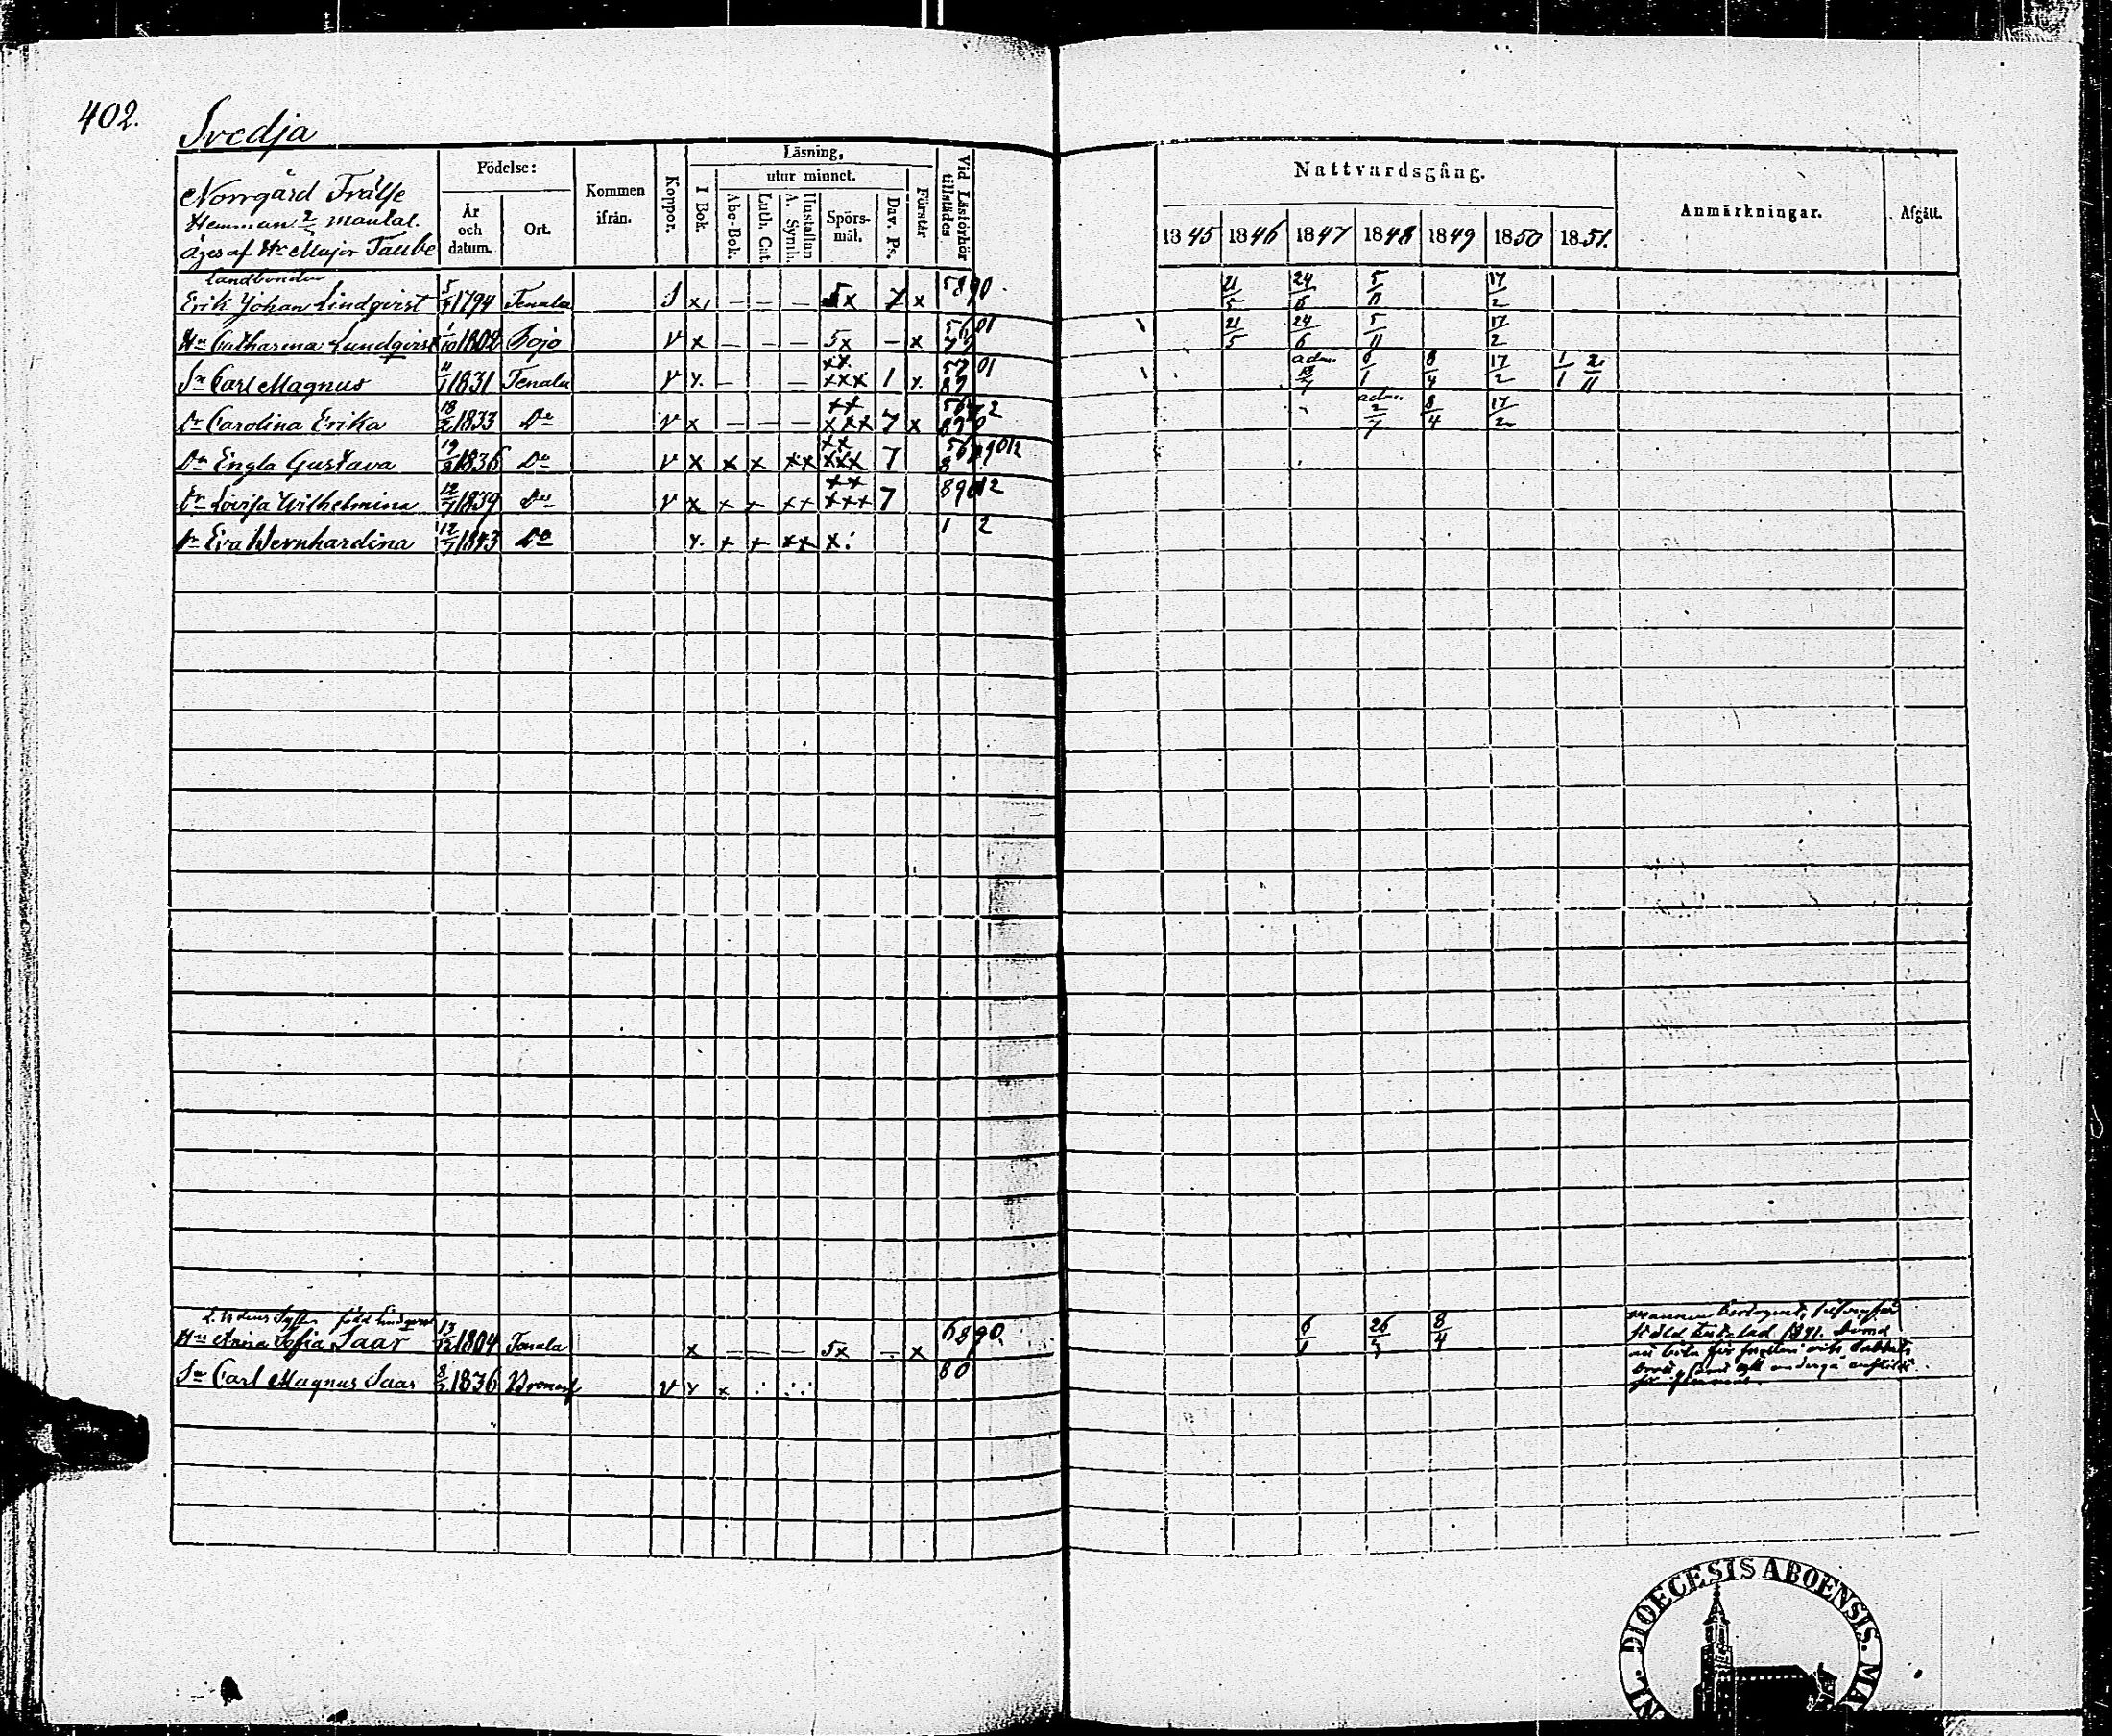 402.
Svedja
Norrgård Frälse
Hemman 2/3 mantal.
Äges af Hr Major Taube
Födelse:
År och datum.
Ort.
Kommen ifrån.
Koppor.
Läsning,
I Bok.
utur minnet.
Abc-Bok.
Luth. Cat.
Hustaflan A. Symb.
Spörsmål.
Dav. Ps.
Förstår
Vid Läsförhör tillstädes
Nattvardsgång.
1845 1846 1847 1848 1849 1850 1851.
Anmärkningar.
Afgått.
Landbonden
Erik Johan Lindqvist 1794 Tenala x 5x 7 x 5890 21/5 24/6 5/11 17/2
Hu Catharina Lundqvist 1/10 1802 Pojo v x – – – 5x – x 21/5 24/6 5/11 17/2
Sn Carl Magnus 11/1 1831 Tenala v x – – xx xxx 1 x 57 01 89 adm. 18/7 6/1 8/4 17/2 1/1 2/11
Dr Carolina Erika 18/2 1833 Do v x – – – xx xxx 7 x adm. 2/7 8/4 17/2
Dr Engla Gustava 1836 Do v x x x xx xx xxx 7
Dr Lovisa Wilhelmina 12/7 1839 Do v x x x xx xx xxx 7 89012
Dr Eva Wernhardina 12/7 1843 Do x x x xx x: 1 2
Hu Anna Sofia Saar 13/12 1804 Tenala x – – – 5x – x 6890. 6/1 8/4
Sn Carl Magnus Saar 1836 Bromarf v x x 80
DIOECESIS ABOENSIS.